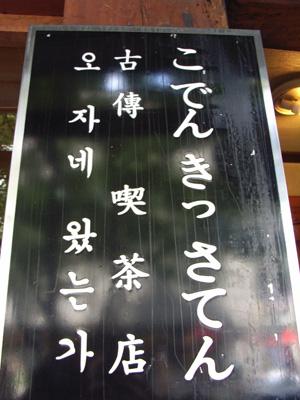 こでんきっさてん
古傳喫茶店
오 자네 왔는가